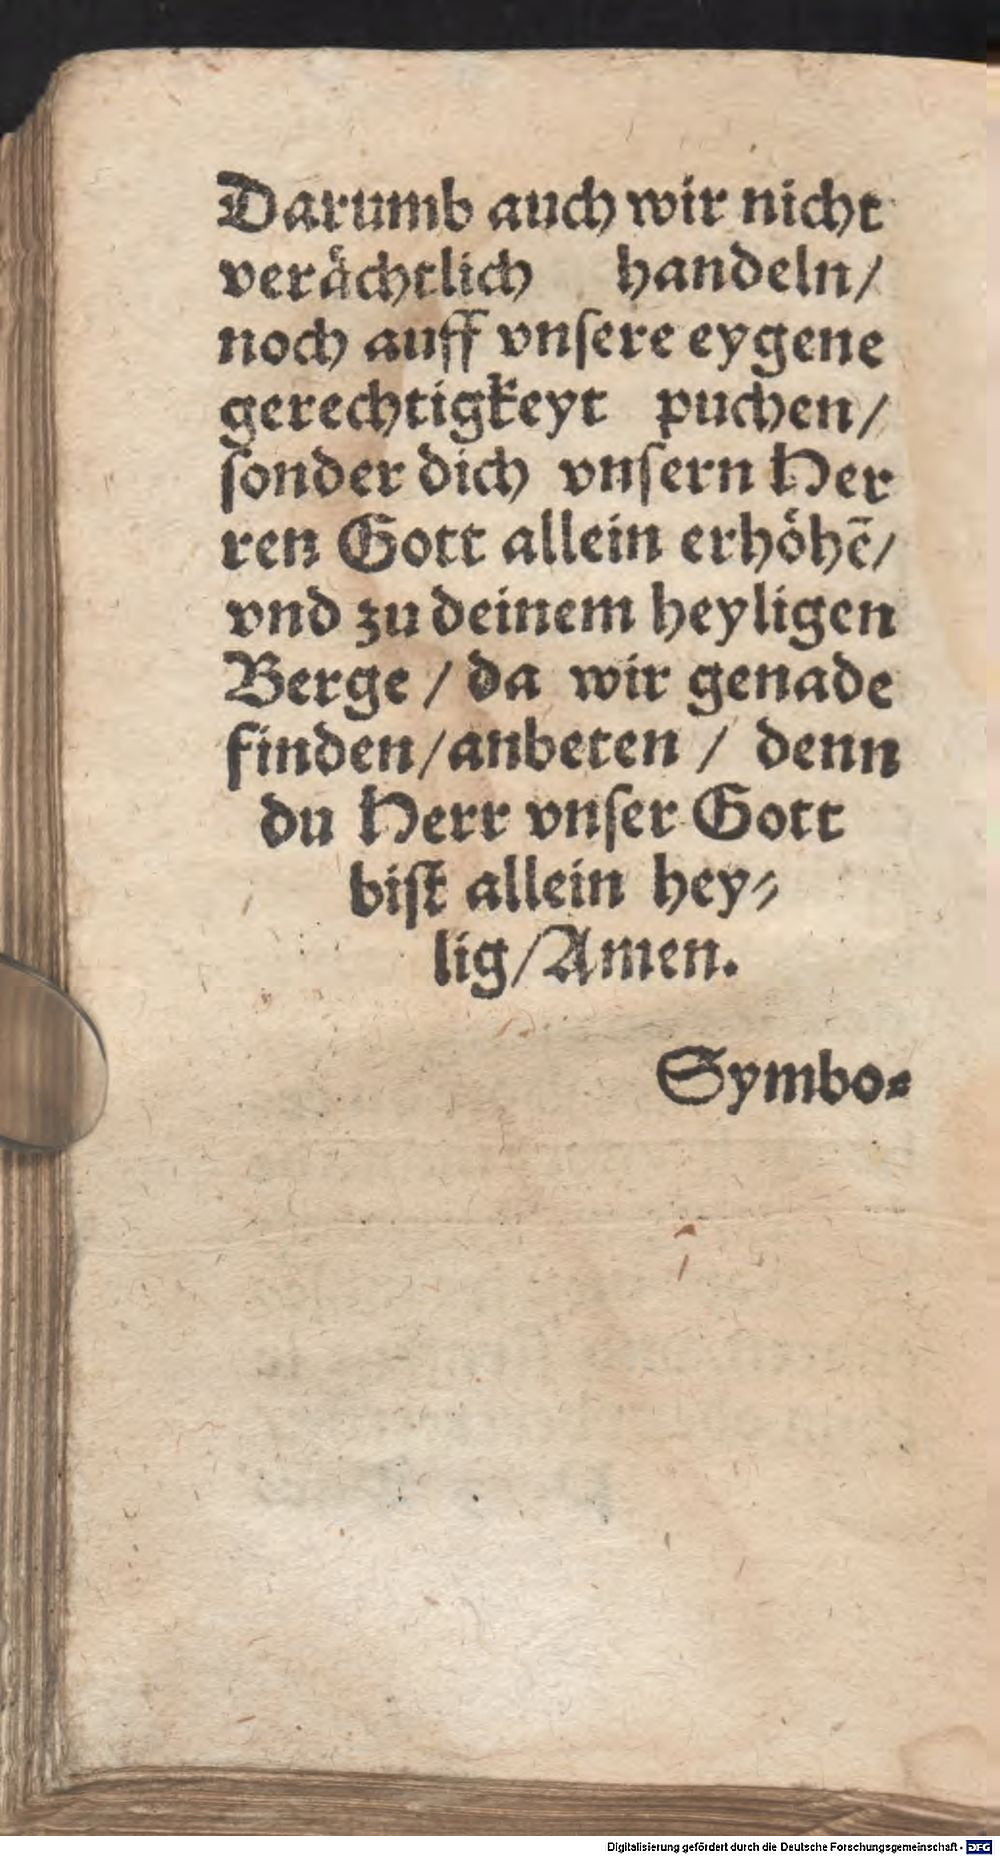 Darumb auch wir nicht
verächtlich handeln/
noch auff vnsere eygene
gerechtigkeyt puchen/
sonder dich vnsern Her
ren Gott allein erhöhē/
vnd zu deinem heyligen
Berge / da wir genade
finden/anbeten / denn
du Herr vnser Gott
bist allein hey-
lig/Amen.
Symbo-
Digitalisierung gefördert durch die Deutsche Forschungsgemeinschaft - DFG